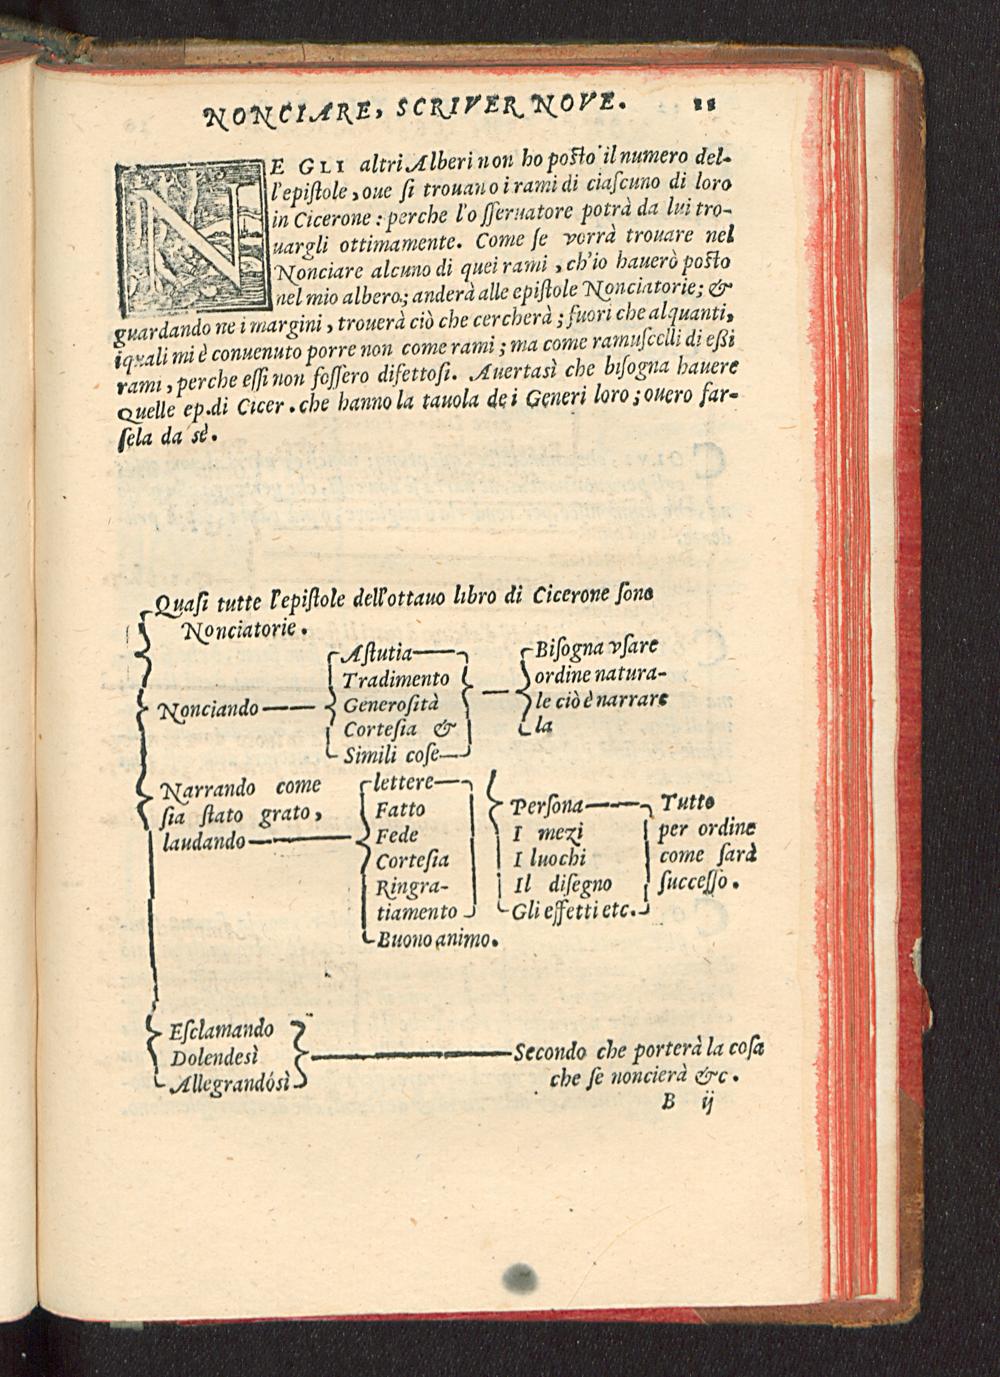 NONCIARE, SCRIVER NOVE. 11
NE GLI altri Alberi non ho posto il numero del-
l'epistole, oue si trouano i rami di ciascuno di loro
in Cicerone: perche l'osseruatore potrà da lui tro-
uargli ottimamente. Come se vorrà trouare nel
Nonciare alcuno di quei rami, ch'io hauerò posto
nel mio albero; anderà alle epistole Nonciatorie; &
guardando ne i margini, trouerà ciò che cercherà; fuori che alquanti,
iquali mi è conuenuto porre non come rami; ma come ramuscelli di eßi
rami, perche essi non fossero difettosi. Auertasì che bisogna hauere
Quelle ep.di Cicer. che hanno la tauola de i Generi loro; ouero far-
sela da sè.
Quasi tutte l'epistole dell'ottauo libro di Cicerone sono
Nonciatorie.
Nonciando
Astutia
Tradimento
Generosità
Cortesia &
Simili cose
Bisogna vsare
ordine natura-
le ciò è narrare
la
Narrando come
sia stato grato,
laudando
lettere
Fatto
Fede
Cortesia
Ringra-
tiamento
Buono animo.
Persona
I mezi
I luochi
Il disegno
Gli effetti etc.
Tutto
per ordine
come sarà
successo.
Esclamando
Dolendesì
Allegrandósì
Secondo che porterà la cosa
che se noncierà &c.
B ij